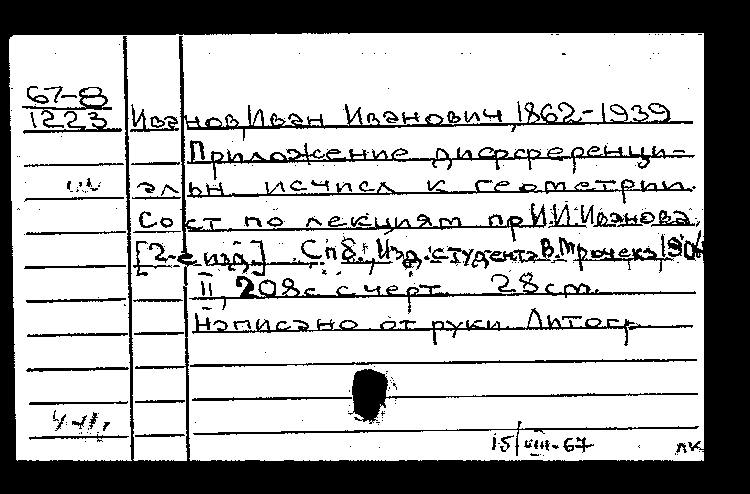 67-8
1223 Иванов, Иван Иванович, 1862-1939
Приложение дифференци-
альн. исчисл к геометрии.
Сост по лекциям пр И.И. Иванова,
[2-е изд.] Спб., Изд. студента В. Трочека, 1906
II, 208с с черт. 28 cm.
Написано от руки. Литогр
15/VIII-67 ЛК